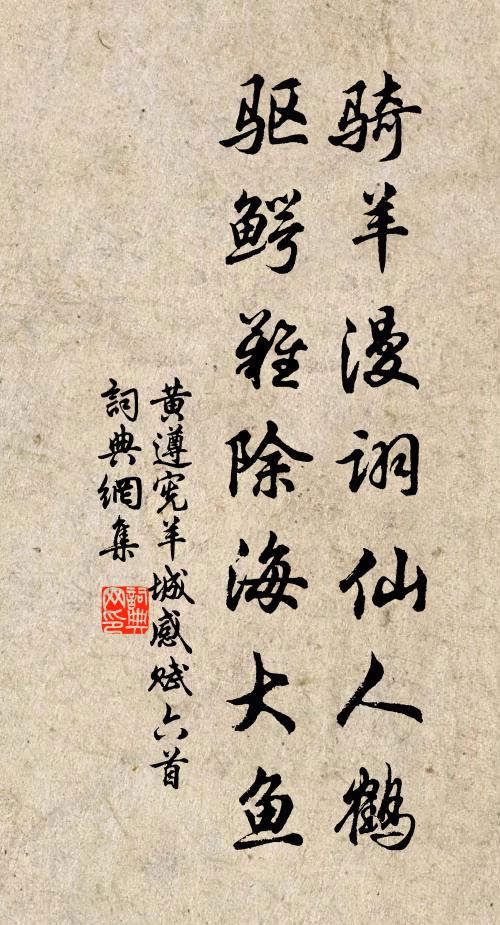 骑羊漫诩仙人鹤
驱鳄难除海大鱼
黄遵宪羊城感赋六首
詞典網集
詞典网印